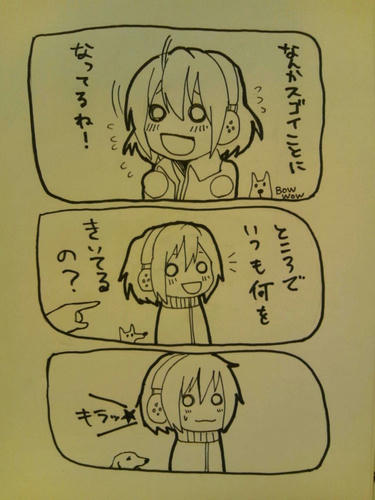 なんかスゴイことに
なってるね！
BOW
WOW
ところで
いつも何を
きいてる
の？
キラッ